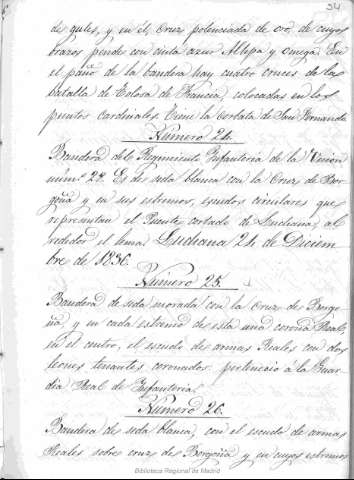 34
de gules, y en él, Cruz potenciada de oro, de cuyos
brazos pende con cinta azur Alfa y omega. En
el paño de la bandera hay cuatro cruces de las
batalla de Tolosa de Francia, colocadas en los
puntos cardinales. Tiene la corbata de San Fernando
Número 24.
Bandera del Regimiento Infantería de la Unión
núm. 28. Es de seda blanca con la Cruz de Bor-
goña y en sus estremos, escudos circulares que
representan el Puente cortado de Luchana; al
rededor el lema Luchana 24 de Diciem-
bre de 1836.
Número 25.
Bandera de seda morada con la Cruz de Borgo-
ña, y en cada estremo de esta una corona Real,
en el centro, el escudo de armas Reales con dos
leones tenantes coronados perteneció á la Guar-
dia Real de Infantería.
Número 26.
Bandera de seda blanca, con el escudo de armas
Reales sobre cruz de Borgoña y en cuyos estremos
Biblioteca Regional de Madrid